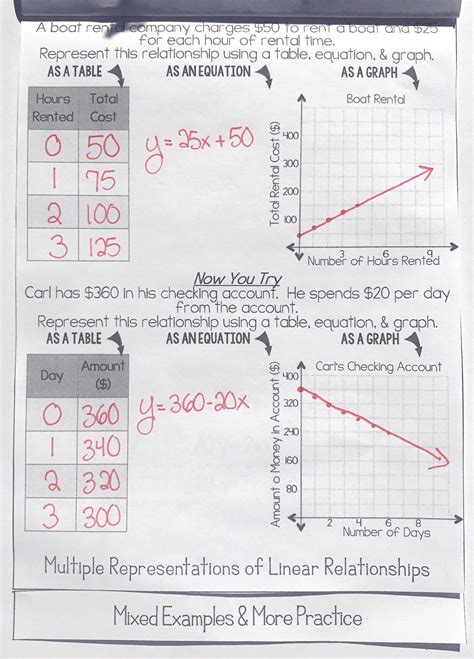 A boat rental company charges $50 to rent a boat and $25
for each hour of rental time.
Represent this relationship using a table, equation, & graph.
AS A TABLE AS AN EQUATION AS A GRAPH
Hours Rented Total Cost
0 50
1 75
2 100
3 125
y = 25x + 50
Boat Rental
Total Rental Cost ($)
400
300
200
100
3 6 9
Number of Hours Rented
Now You Try
Carl has $360 in his checking account. He spends $20 per day
from the account.
Represent this relationship using a table, equation, & graph.
AS A TABLE AS AN EQUATION AS A GRAPH
Day Amount ($)
0 360
1 340
2 320
3 300
y = 360-20x
Carl's Checking Account
Amount o Money in Account ($)
400
320
240
160
80
2 4 6 8
Number of Days
Multiple Representations of Linear Relationships
Mixed Examples & More Practice